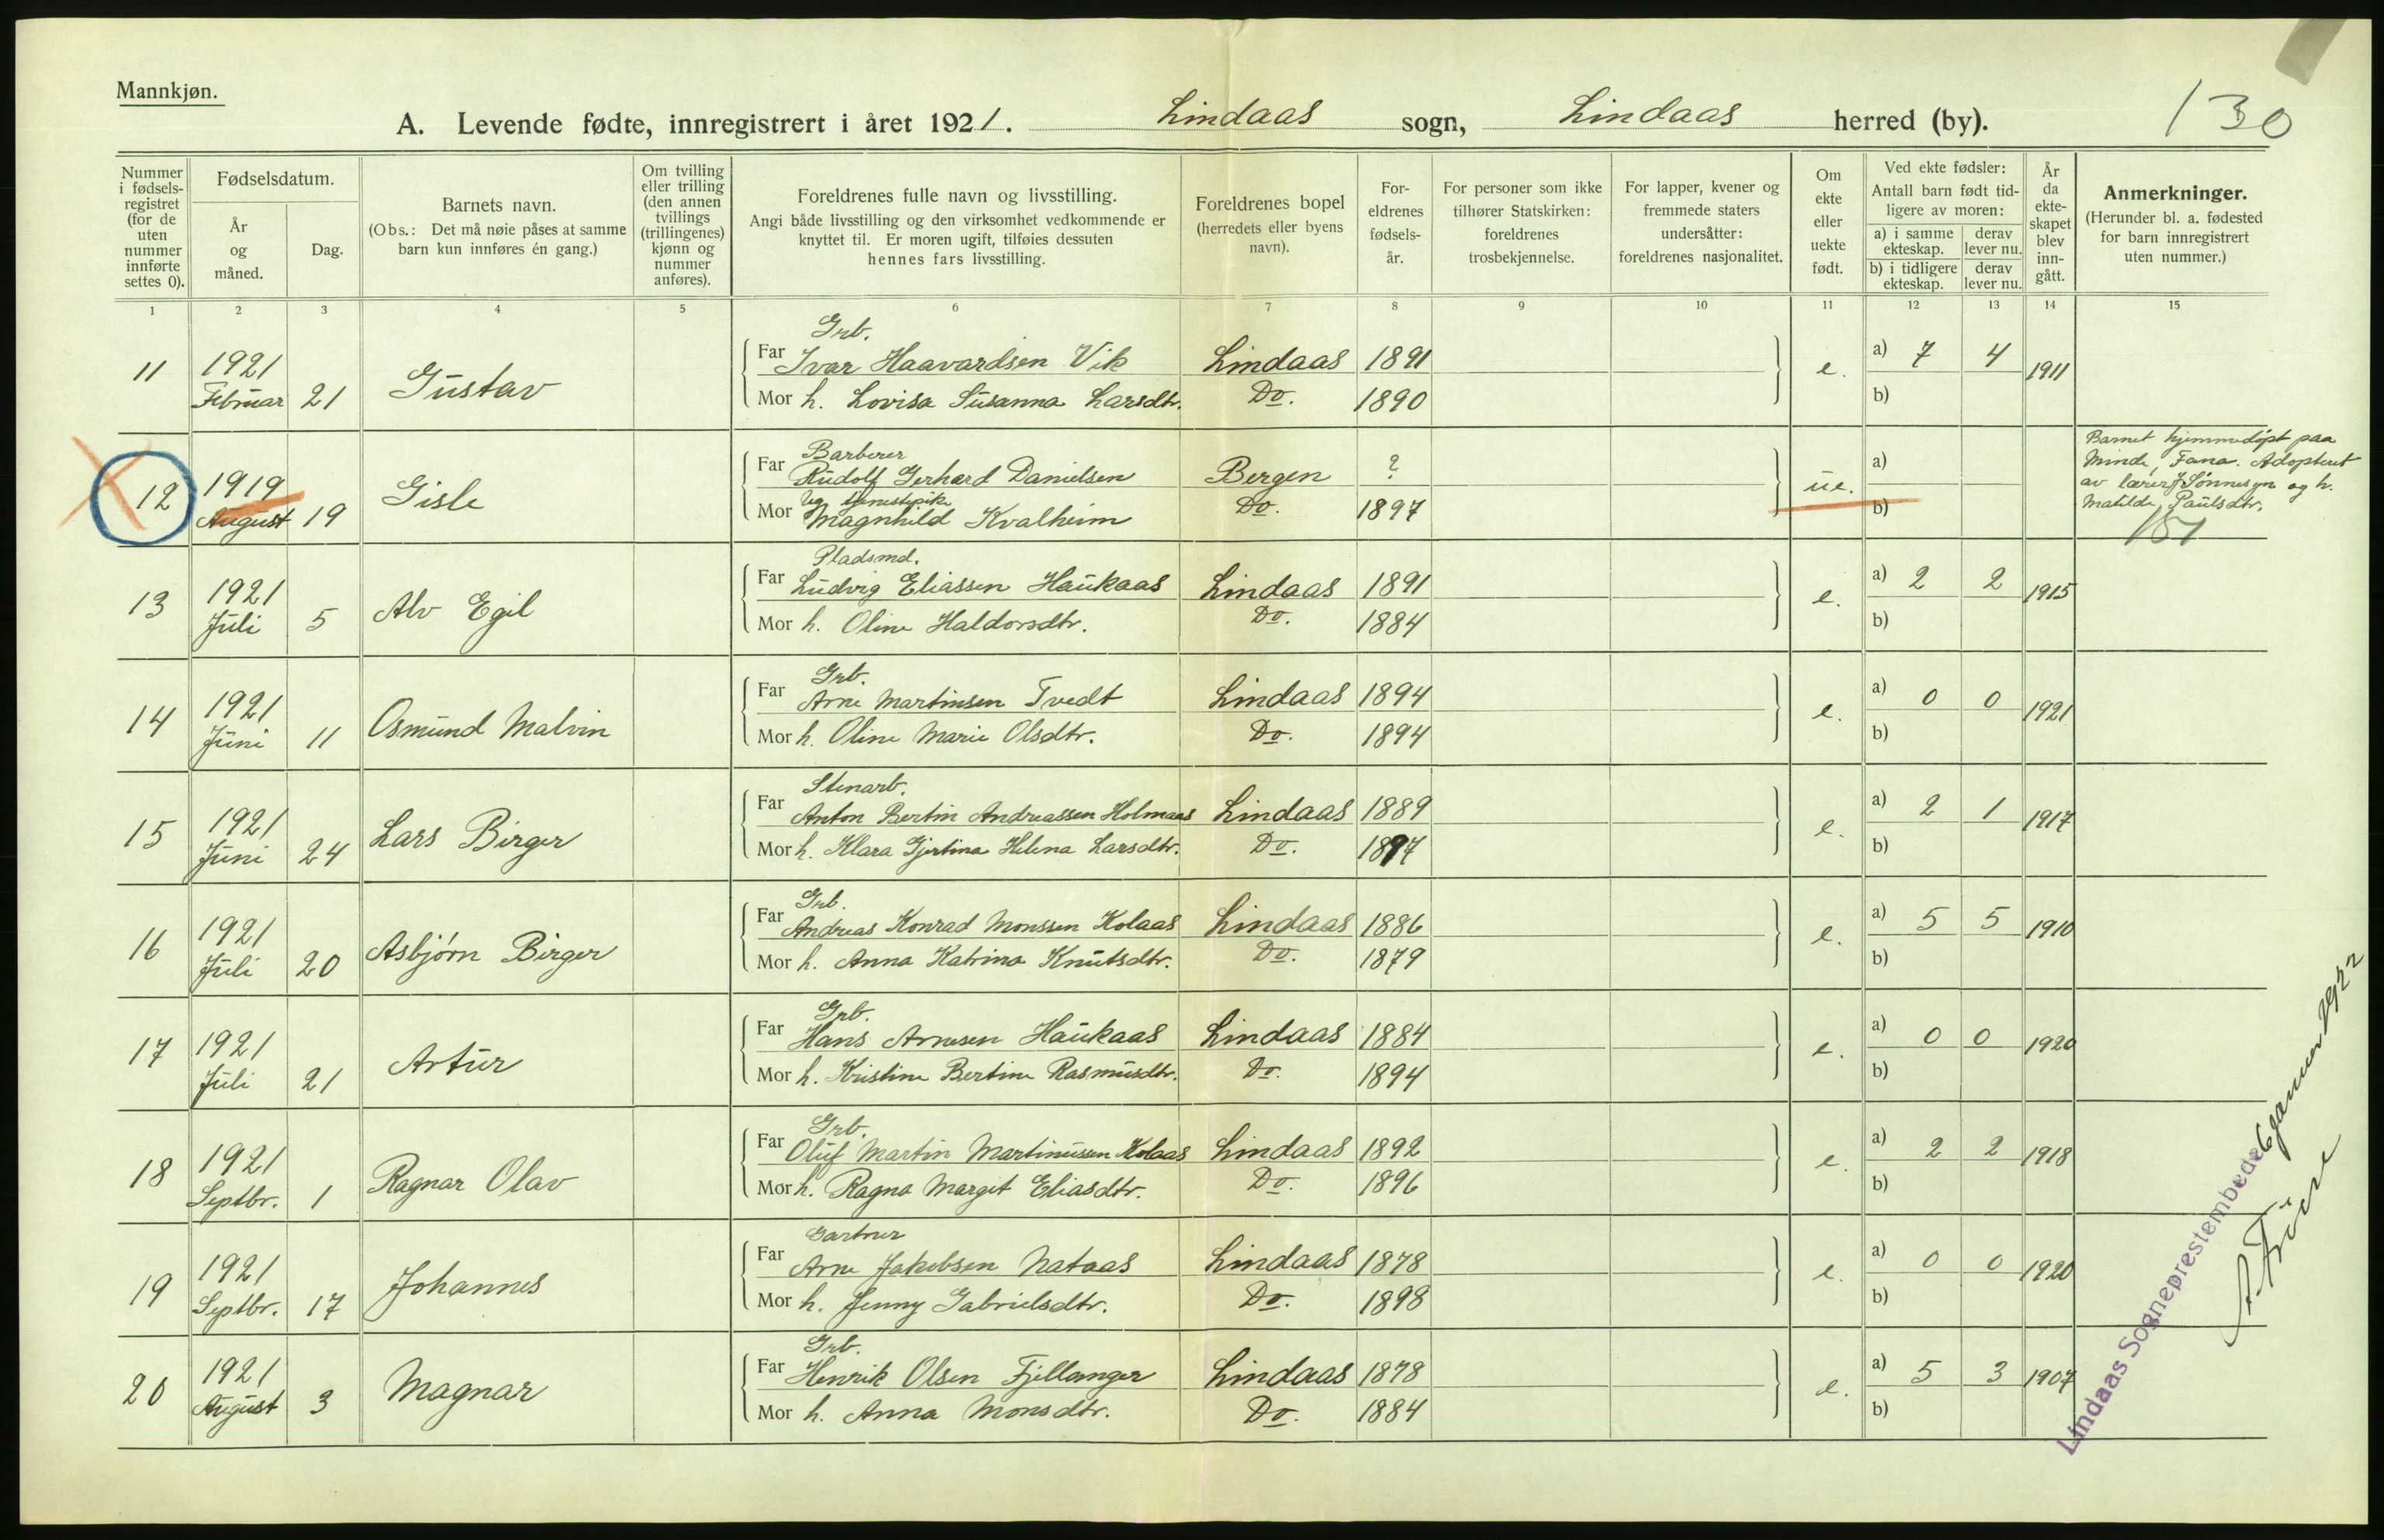 Mannkjøn.
A. Levende fødte, innregistrert i året 1921. Lindaas sogn, Lindaas herred (by).
130
Nummer i fødsels-registret (for de uten nummer innførte settes 0).
Fødselsdatum.
År og måned.
Dag.
Barnets navn.
(Obs.: Det må nøie påses at samme barn kun innføres én gang.)
Om tvilling eller trilling (den annen tvillings (trillingenes) kjønn og nummer anføres).
Foreldrenes fulle navn og livsstilling.
Angi både livsstilling og den virksomhet vedkommende er knyttet til. Er moren ugift, tilføies dessuten hennes fars livsstilling.
Foreldrenes bopel (herredets eller byens navn).
For-eldrenes fødsels-år.
For personer som ikke tilhører Statskirken: foreldrenes trosbekjennelse.
For lapper, kvener og fremmede staters undersåtter: foreldrenes nasjonalitet.
Om ekte eller uekte født.
Ved ekte fødsler:
Antall barn født tid-ligere av moren:
a) i samme ekteskap. derav lever nu.
b) i tidligere ekteskap. derav lever nu.
År da ekte-skapet blev inn-gått.
Anmerkninger.
(Herunder bl. a. fødested for barn innregistrert uten nummer.)
1 2 3 4 5 6 7 8 9 10 11 12 13 14 15
Grb.
11 1921 Februar 21 Gustav Far Ivar Haavardsen Vik Lindaas 1891 e. a) 7 4 1911
Mor h. Lovisa Susanna Larsdtr. Do. 1890 b)
Barberer
12 1919 August 19 Gisle Far Rudolf Gerhard Danielsen Bergen ? ue. a)
Ug tjenestepike
Mor Magnhild Kvalheim Do. 1897 b)
Barnet hjemmedøpt paa
Minde, Fana. Adopteret
av lærer J. Sønnesyn og h.
Matilde Paulsdtr.
151
Pladsmd.
13 1921 Juli 5 Alv Egil Far Ludvig Eliassen Haukaas Lindaas 1891 e. a) 2 2 1915
Mor h. Oline Haldorsdtr. Do. 1884 b)
Grb.
14 1921 Juni 11 Osmund Malvin Far Arne Martinsen Tvedt Lindaas 1894 e. a) 0 0 1921
Mor h. Oline Marie Olsdtr. Do. 1894 b)
Stenarb.
15 1921 Juni 24 Lars Birger Far Anton Bertin Andreassen Holmaas Lindaas 1889 e. a) 2 1 1917
Mor h. Klara Gjertina Helena Larsdtr. Do. 1897 b)
Grb.
16 1921 Juli 20 Asbjørn Birger Far Andreas Konrad Monssen Kolaas Lindaas 1886 e. a) 5 5 1910
Mor h. Anna Katrina Knutsdtr. Do. 1879 b)
Grb.
17 1921 Juli 21 Artur Far Hans Arnesen Haukaas Lindaas 1884 e. a) 0 0 1920
Mor h. Kristine Bertine Rasmusdtr. Do. 1894 b)
Grb.
18 1921 Septbr. 1 Ragnar Olav Far Oluf Martin Martinussen Kolaas Lindaas 1892 e. a) 2 2 1918
Mor h. Ragna Margit Eliasdtr. Do. 1896 b)
Gartner
19 1921 Septbr. 17 Johannes Far Arne Jakobsen Nataas Lindaas 1878 e. a) 0 0 1920
Mor h. Jenny Gabrielsdtr. Do. 1898 b)
Grb.
20 1921 August 3 Magnar Far Henrik Olsen Fjellanger Lindaas 1878 e. a) 5 3 1907
Mor h. Anna Monsdtr. Do. 1884 b)
Lindaas Sogneprestembede 6 januar 1922